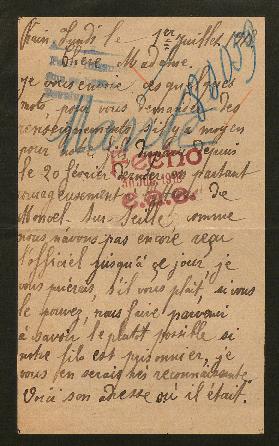 Lundi le 1er Juillet 1918
Chère Madame.
je vous envoie ces quelques
mots, pour vous demander des
renseignements s'il y a moyen
pour mon fils disparu depuis
le 20 février dernier en partant
courageusement de
Moncel Sur Seille, comme
nous n'avons pas encore reçu
l'officiel jusqu'à ce jour, je
vous prierais, s'il vous plaît, si vous
le pouvez, nous faire parvenir
à savoir le plutot possible si
notre fils est prisonnier, je
vous en serais très reconnaissante
Voici son adresse où il était.